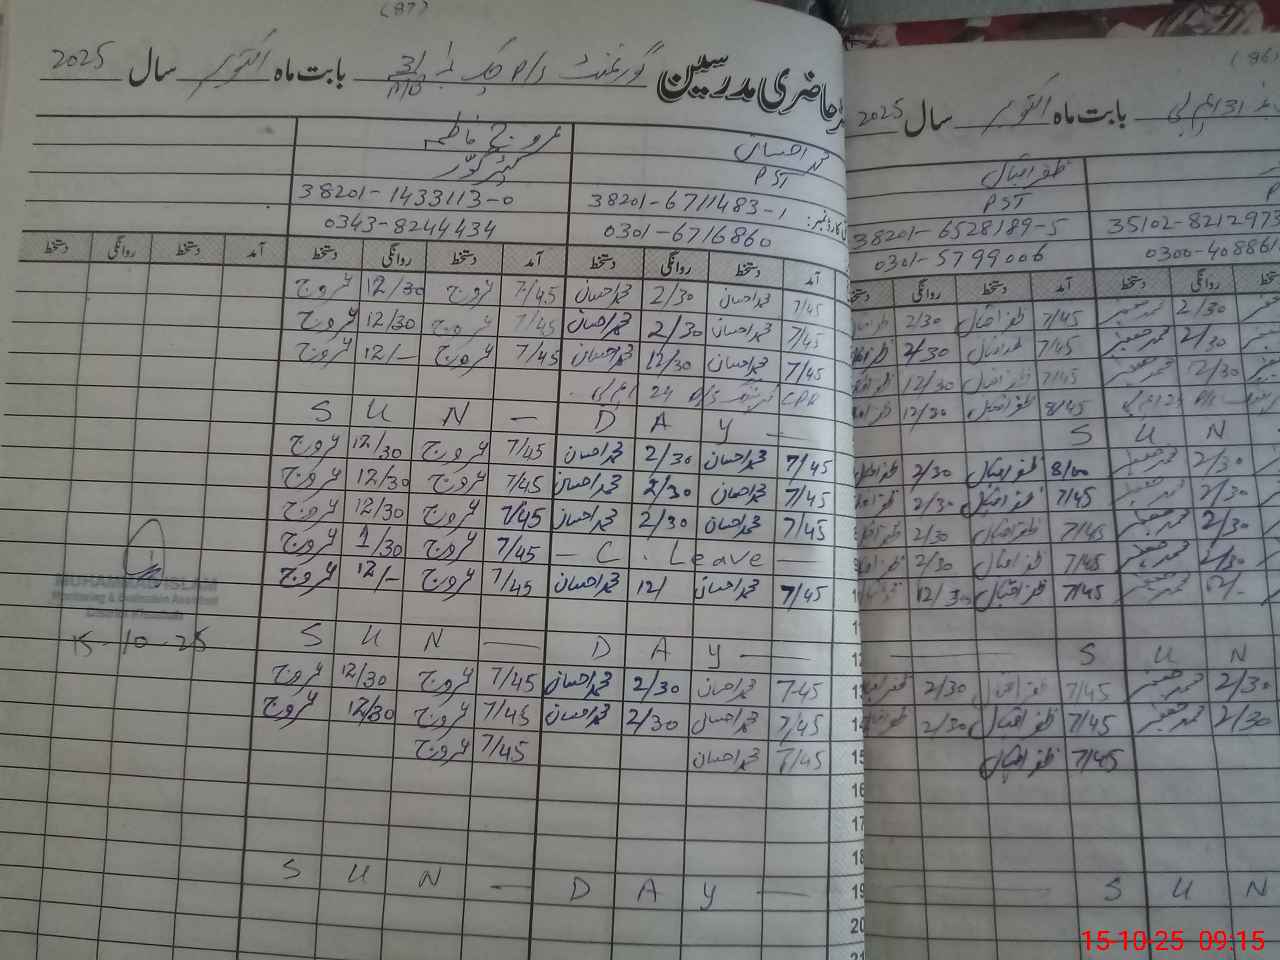 (87)
حاضری مدرسین گورنمنٹ P/S چک نمبر 31 M/B بابت ماہ اکتوبر سال 2025
محمد احسان عروج فاطمہ
PST کیئر گیور
38201-6711483-1 38201-1433113-0
0301-6716860 0343-8244434
آمد دستخط روانگی دستخط آمد دستخط روانگی دستخط آمد دستخط روانگی دستخط
7/45 محمد احسان 2/30 محمد احسان 7/45 عروج 12/30 عروج
7/45 محمد احسان 2/30 محمد احسان 7/45 عروج 12/30 عروج
7/45 محمد احسان 12/30 محمد احسان 7/45 عروج 12/- عروج
CPD P/S 24
S U N - D A Y -
7/45 محمد احسان 2/30 محمد احسان 7/45 عروج 12/30 عروج
7/45 محمد احسان 2/30 محمد احسان 7/45 عروج 12/30 عروج
7/45 محمد احسان 2/30 محمد احسان 7/45 عروج 12/30 عروج
- C. Leave - 7/45 عروج 1/30 عروج
7/45 محمد احسان 12/ محمد احسان 7/45 عروج 12/- عروج
S U N - D A Y -
7-45 محمد احسان 2/30 محمد احسان 7/45 عروج 12/30 عروج
7/45 محمد احسان 2/30 محمد احسان 7/45 عروج 12/30 عروج
7/45 محمد احسان 7/45 عروج
S U N - D A Y -
MUHAMMAD ISLAM
Monitoring & Evaluation Assistant
15-10-25
(86)
31 ایم بی بابت ماہ اکتوبر سال 2025
ظفر اقبال
PST
35102-8212973 38201-6528189-5
0300-408861 0301-5799006
دستخط روانگی دستخط آمد دستخط روانگی
2/30 محمد صفدر 7/45 ظفر اقبال 2/30 ظفر اقبال
2/30 محمد صفدر 7/45 ظفر اقبال 2/30 ظفر اقبال
2/30 7/45 ظفر اقبال 12/30 ظفر اقبال
8/45 ظفر اقبال 12/30 ظفر اقبال
S U N
2/30 محمد صفدر 8/00 ظفر اقبال 2/30 ظفر اقبال
2/30 محمد صفدر 7/45 ظفر اقبال 2/30 ظفر اقبال
2/30 محمد صفدر 7/45 ظفر اقبال 2/30 ظفر اقبال
2/30 محمد صفدر 7/45 ظفر اقبال 2/30 ظفر اقبال
12/- محمد صفدر 7/45 ظفر اقبال 12/30
11
12 S U N
13 2/30 محمد صفدر 7/45 ظفر اقبال 2/30 ظفر اقبال
14 2/30 محمد صفدر 7/45 ظفر اقبال 2/30 ظفر اقبال
15 7/45 ظفر اقبال
16
17
18
19 S U N
20
21
15-10-25 09:15